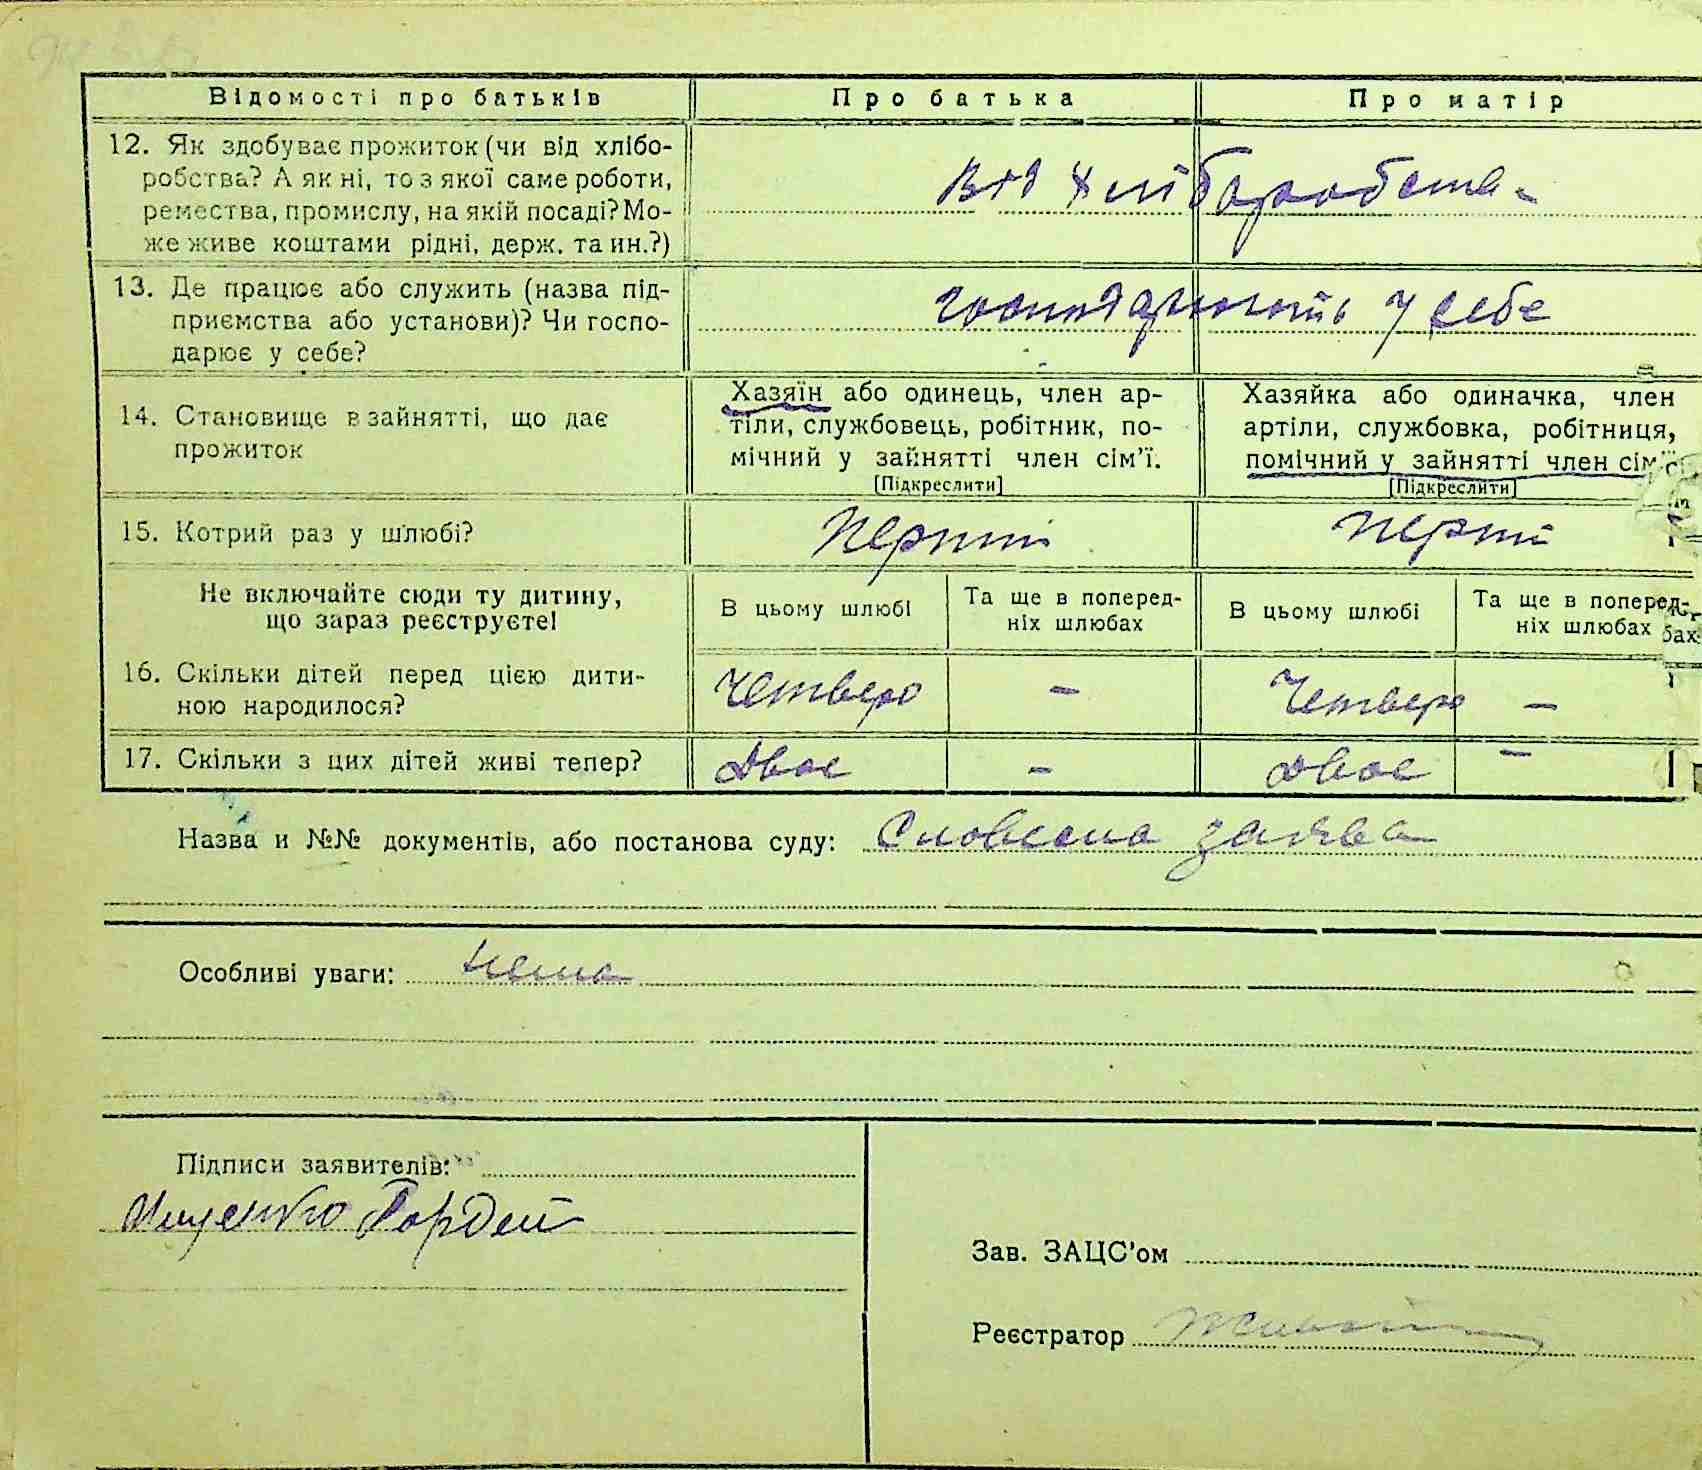 Відомості про батьків
Про батька
Про матір
12. Як здобуває прожиток (чи від хлібо-
робства? А як ні, то з якої саме роботи,
ремества, промислу, на якій посаді? Мо-
же живе коштами рідні, держ. та ин.?)
Від хліборобства
13. Де працює або служить (назва під-
приємства або установи)? Чи госпо-
дарює у себе?
господарюють у себе
14. Становище в зайнятті, що дає
прожиток
Хазяїн або одинець, член ар-
тіли, службовець, робітник, по-
мічний у зайнятті член сім'ї.
[Підкреслити]
Хазяйка або одиначка, член
артіли, службовка, робітниця,
помічний у зайнятті член сім'ї
[Підкреслити]
15. Котрий раз у шлюбі?
Перший
Перший
Не включайте сюди ту дитину,
що зараз реєструєте!
В цьому шлюбі
Та ще в поперед-
ніх шлюбах
В цьому шлюбі
Та ще в поперед-
ніх шлюбах
16. Скільки дітей перед цією дити-
ною народилося?
Четверо
–
Четверо
–
17. Скільки з цих дітей живі тепер?
Двоє
–
Двоє
–
Назва и №№ документів, або постанова суду: Словесна заява
Особливі уваги: нема
Підписи заявителів:
Ищенко Гордей
Зав. ЗАЦС'ом
Реєстратор